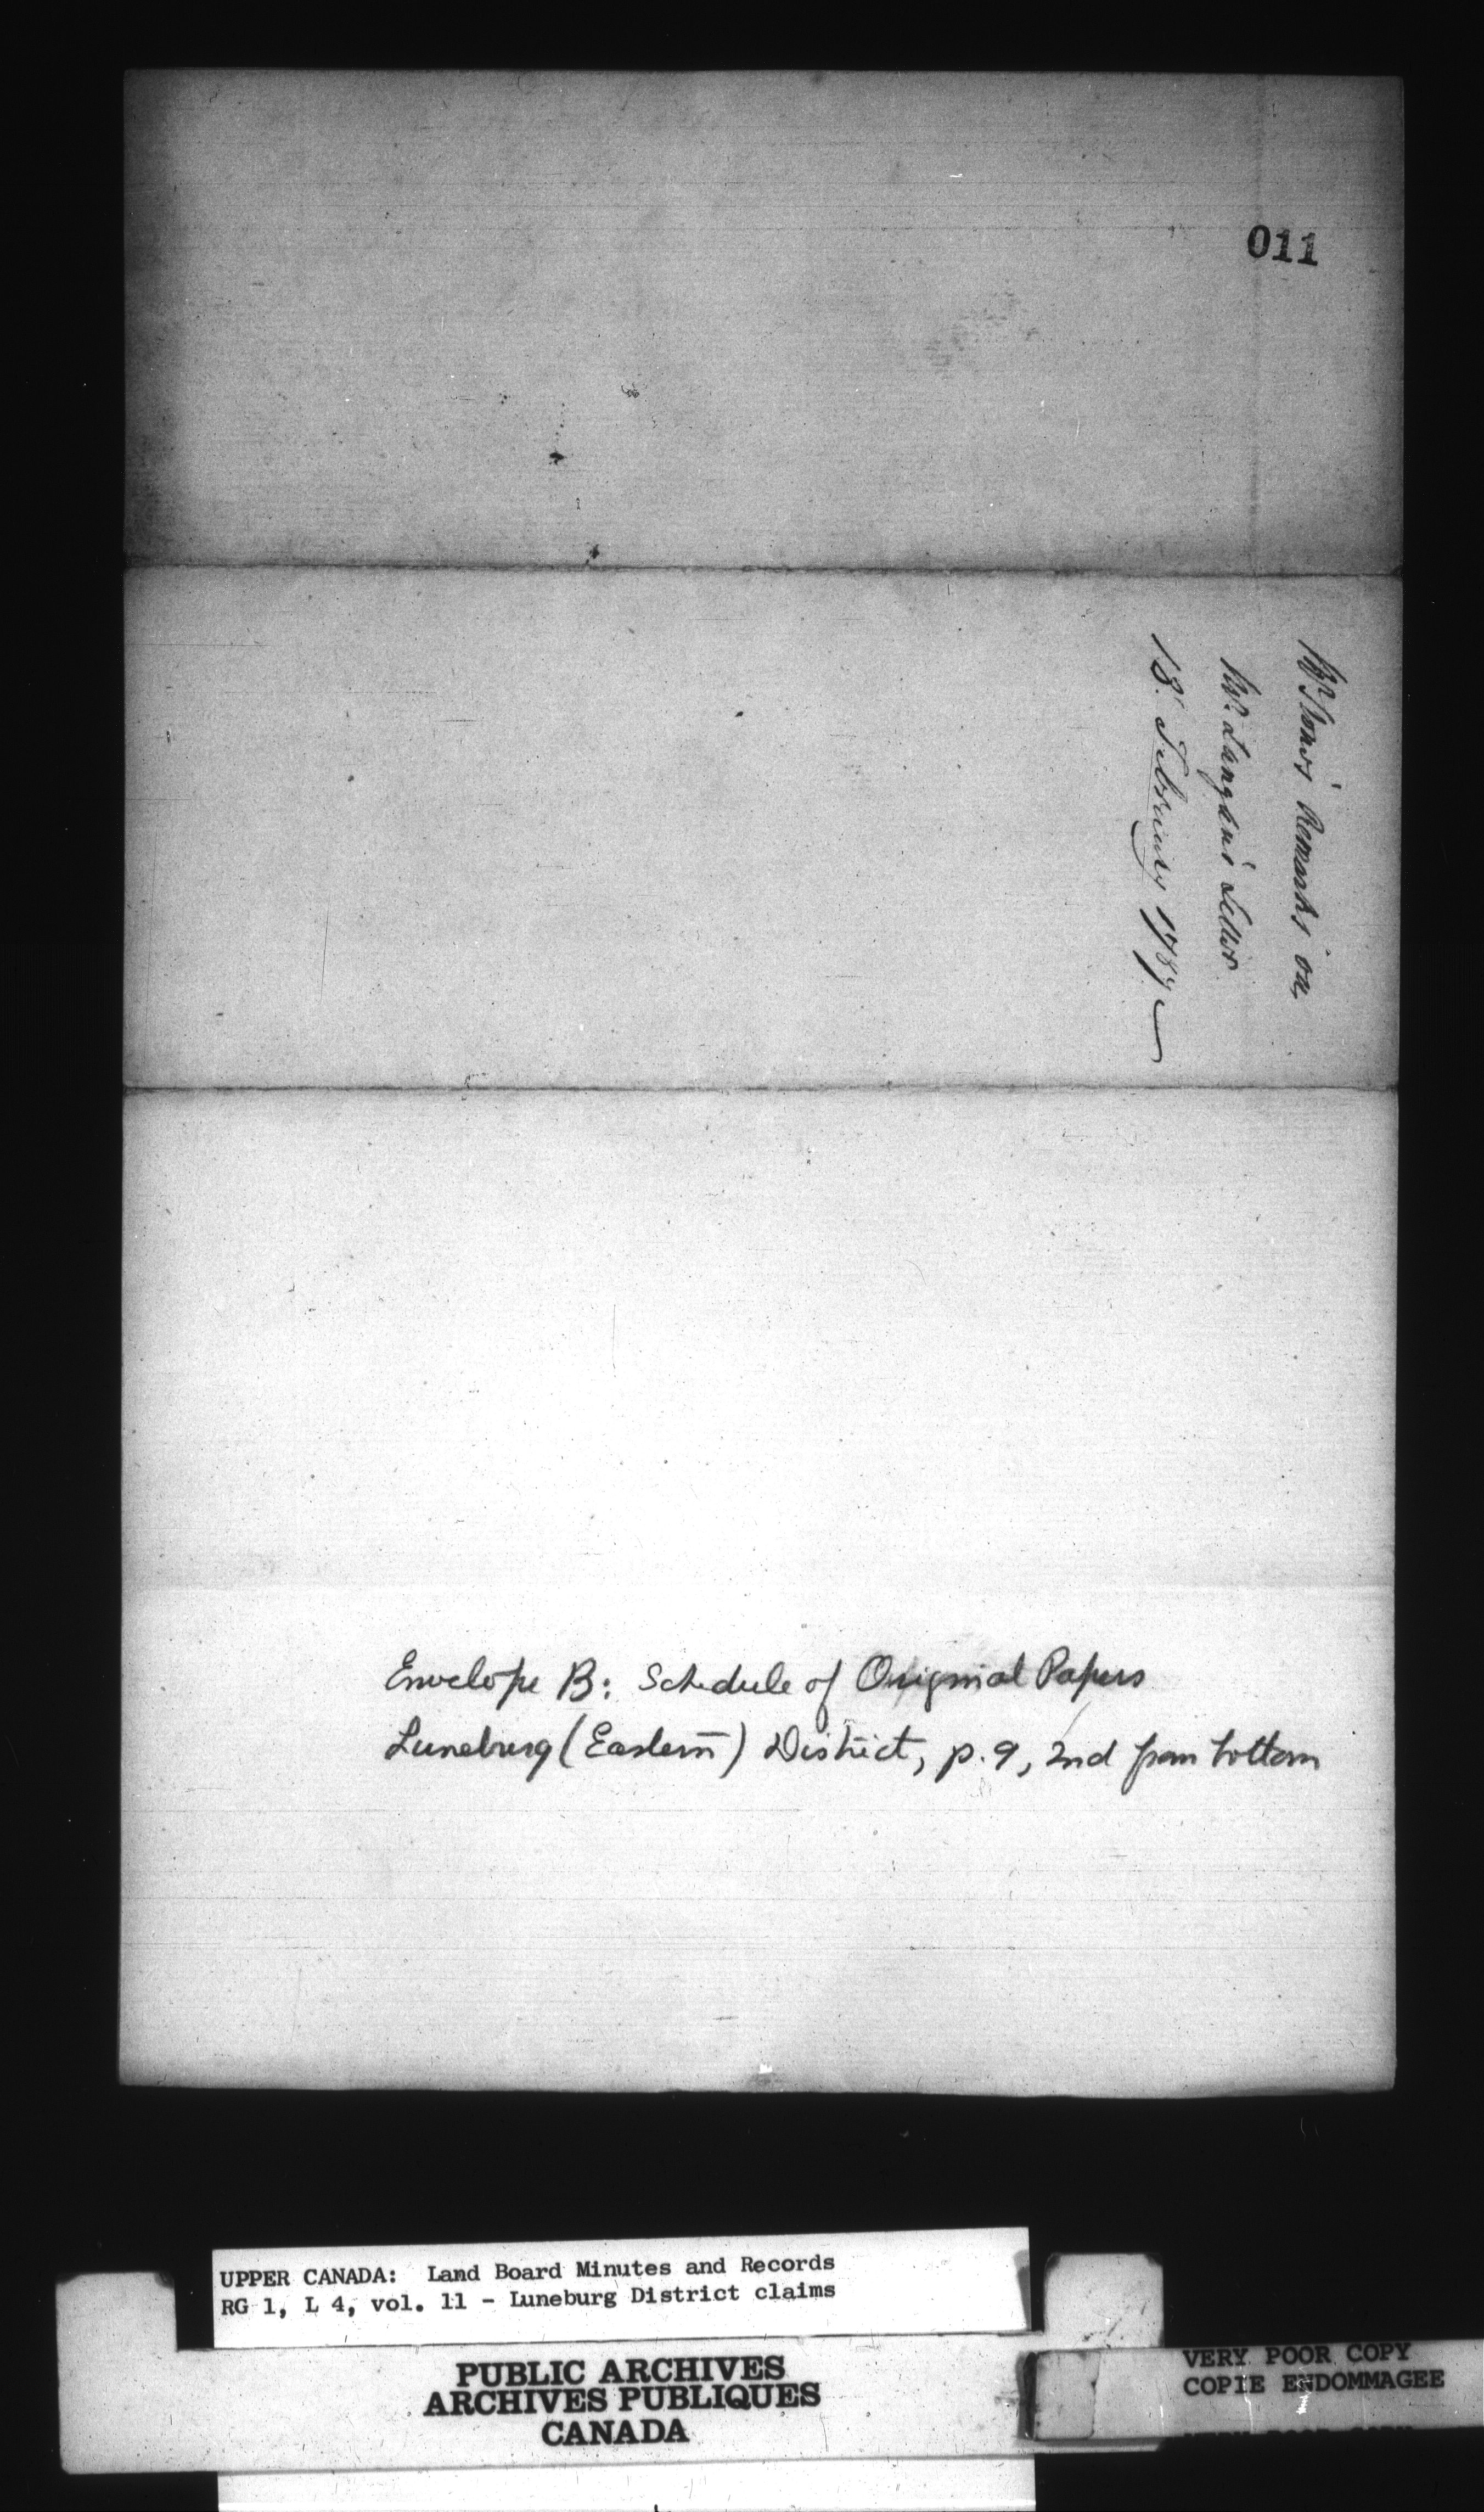 011
Remarks on
Mr. Langan's Letter
18. February 1787
Envelope B: Schedule of Original Papers
Luneburg (Eastern) District, p. 9, 2nd from bottom
UPPER CANADA: Land Board Minutes and Records
RG 1, L 4, vol. 11 - Luneburg District claims
PUBLIC ARCHIVES
ARCHIVES PUBLIQUES
CANADA
VERY POOR COPY
COPIE ENDOMMAGEE